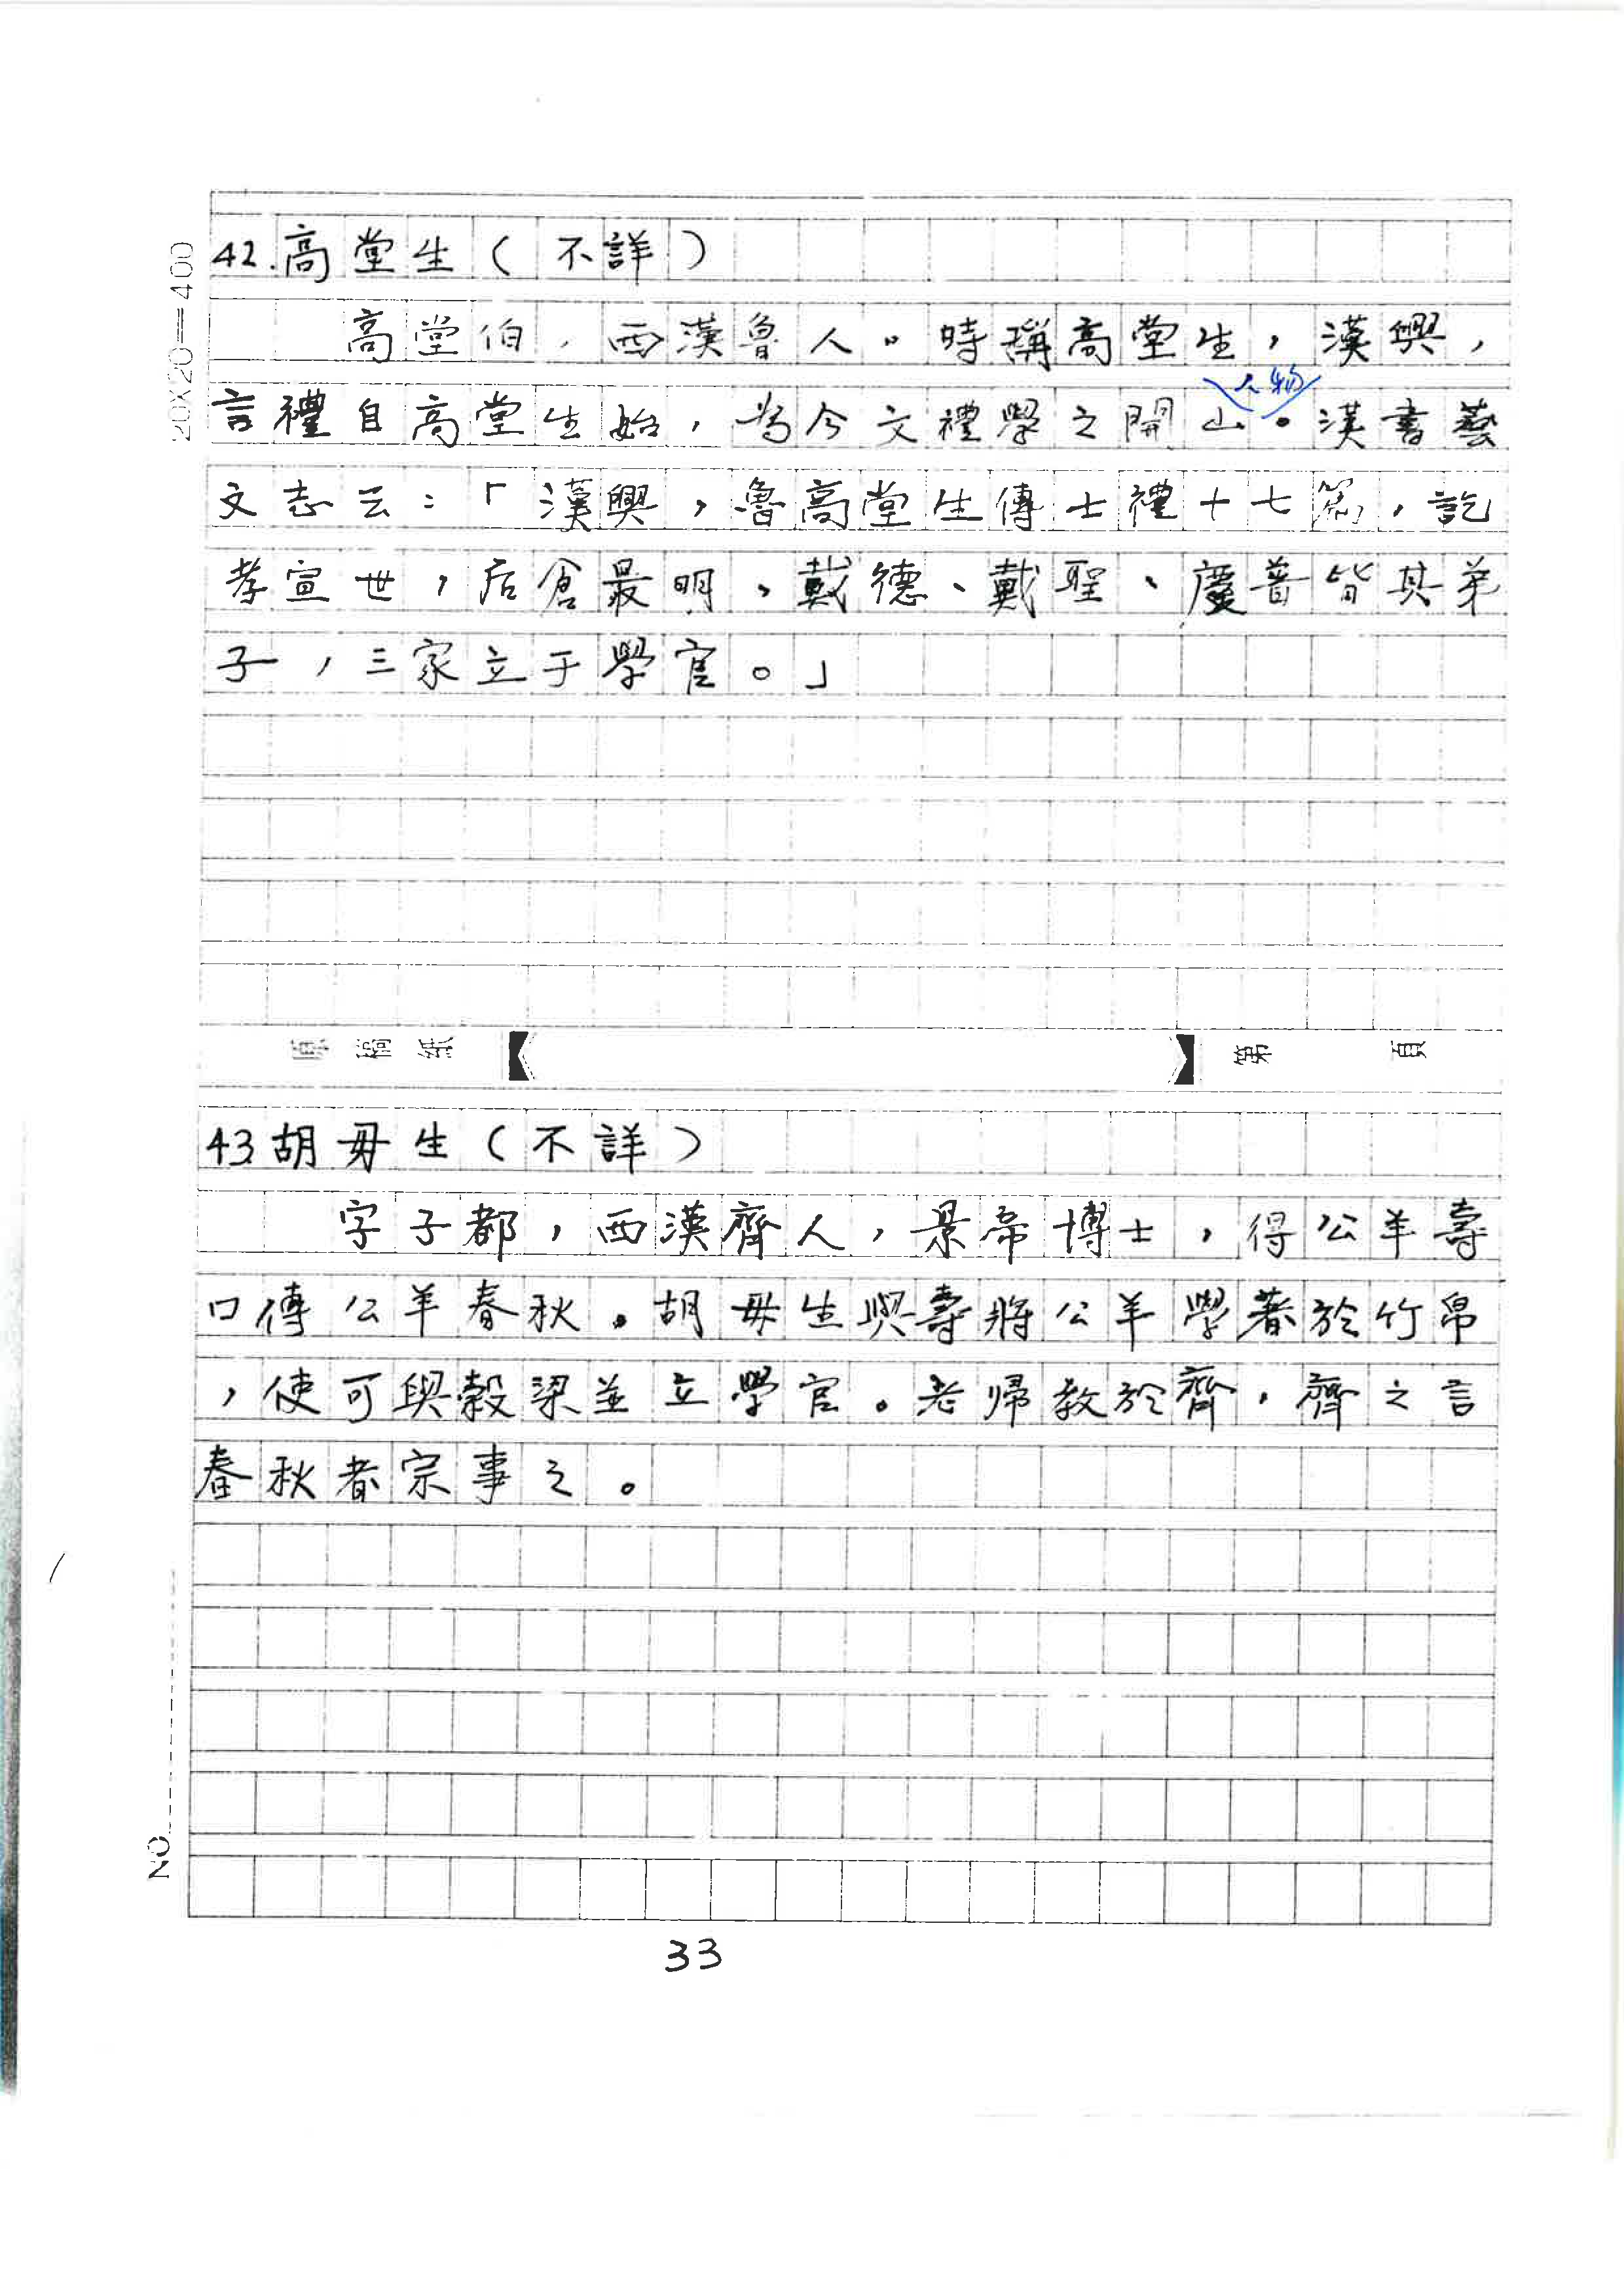 20X20=400
42.高堂生(不詳)
高堂伯,西漢魯人。時稱高堂生,漢興,
人物
言禮自高堂生始,為今文禮學之開山。漢書藝
文志云:「漢興,魯高堂生傳士禮十七篇,訖
孝宣世,后倉最明,戴德、戴聖、慶普皆其弟
子,三家立于學官。」
原稿紙 第 頁
43.胡毋生(不詳)
字子都,西漢齊人,景帝博士,得公羊壽
口傳公羊春秋。胡毋生與壽將公羊學著於竹帛
,使可與穀梁並立學官。老歸教於齊,齊之言
春秋者宗事之。
NO
33